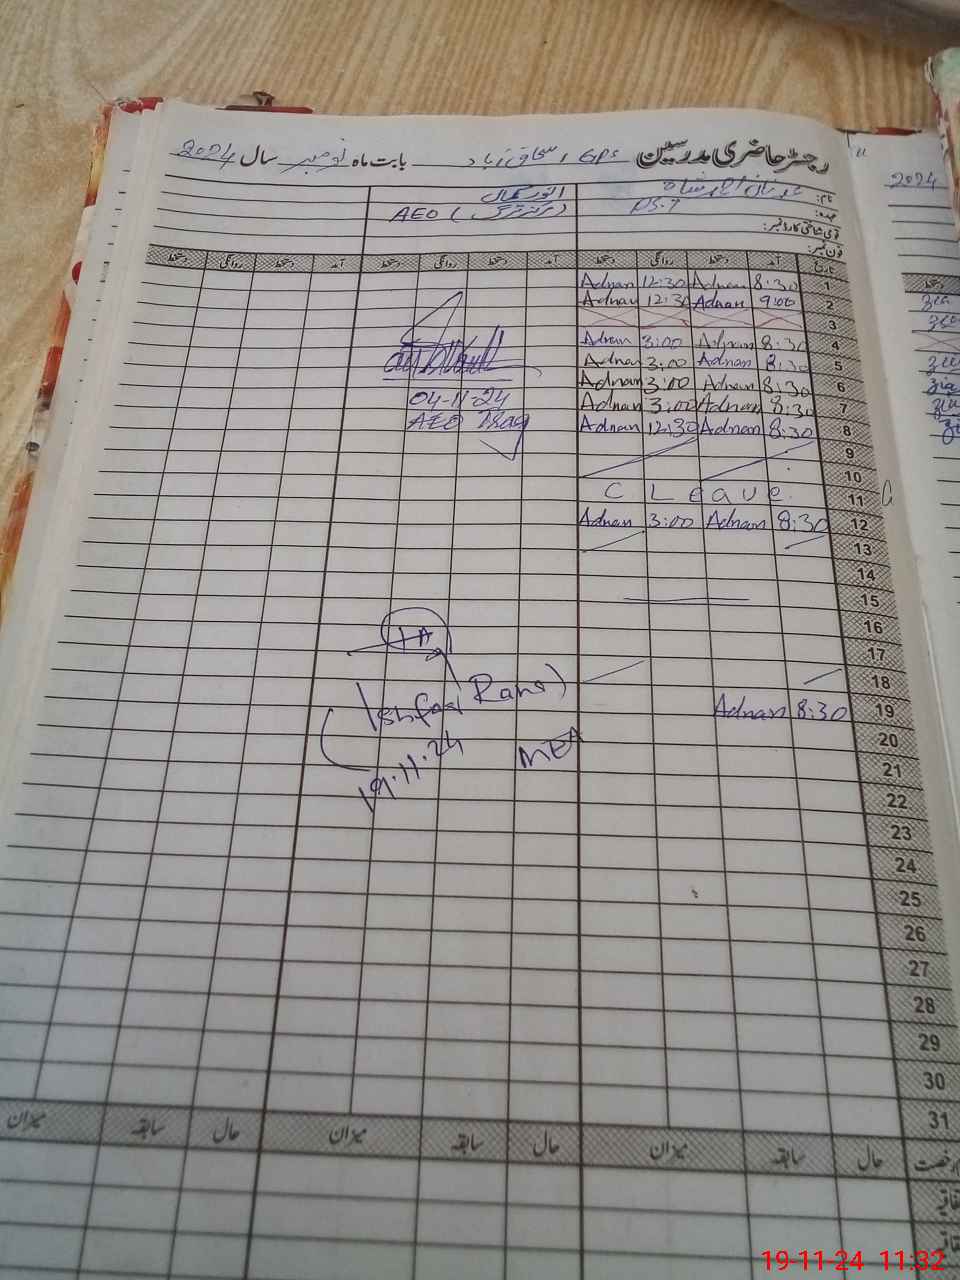 رجسٹر حاضری مدرسین GPS اسحاق آباد بابت ماہ نومبر سال 2024
2024
نام: عدنان احمد شاہ
انور کمال
عہدہ: PS.7
AEO (مرکز ترگ)
قومی شناختی کارڈ نمبر:
فون نمبر:
تاریخ آمد دستخط روانگی دستخط آمد دستخط روانگی دستخط آمد دستخط روانگی دستخط
1 8:30 Adnan 12:30 Adnan
2 9:00 Adnan 12:30 Adnan
3
4 8:30 Adnan 3:00 Adnan
5 8:30 Adnan 3:00 Adnan
6 8:30 Adnan 3:00 Adnan
7 8:30 Adnan 3:00 Adnan
8 8:30 Adnan 12:30 Adnan
04-11-24
AEO Trag
9
10
11 C Leave.
12 8:30 Adnan 3:00 Adnan
13
14
15
16
17
18
19 8:30 Adnan
(Ishfaq Rana)
19.11.24
MEA
20
21
22
23
24
25
26
27
28
29
30
31
رخصت حال سابقہ میزان حال سابقہ میزان حال سابقہ میزان
19-11-24 11:32